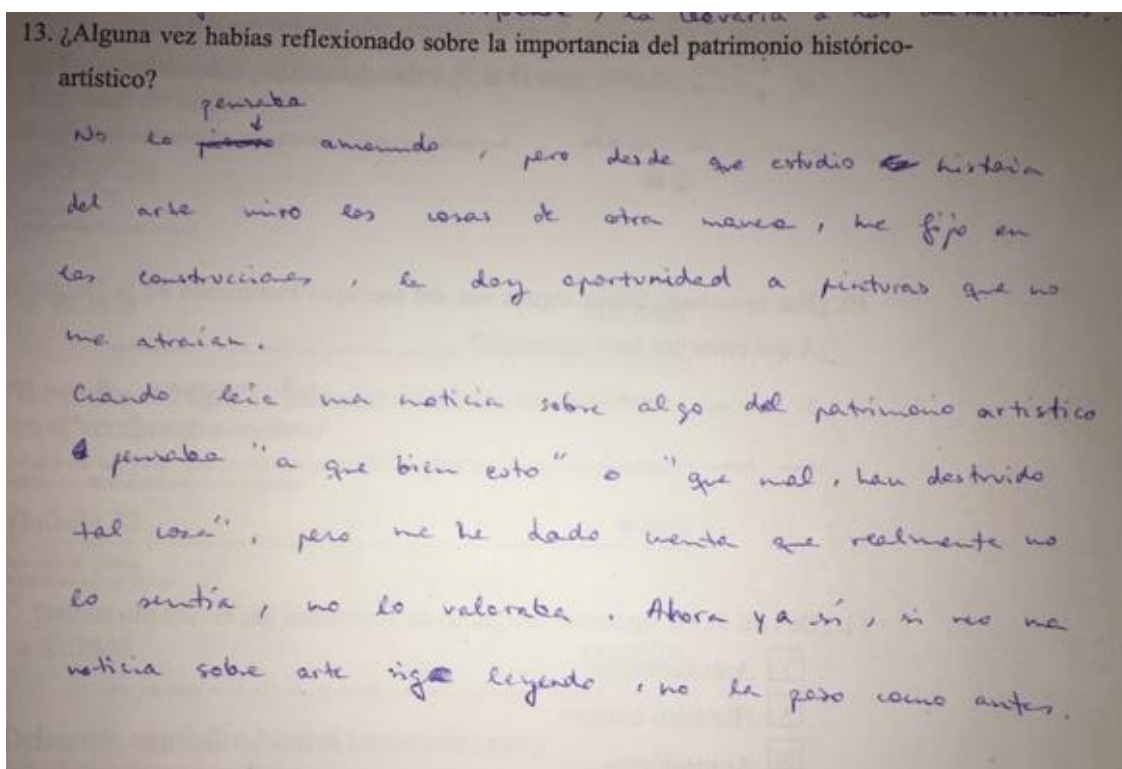 la llevaría a los
13. ¿Alguna vez habías reflexionado sobre la importancia del patrimonio histórico-
artístico?
pensaba
No lo amenundo, pero desde que estudio historia
del arte miro las cosas de otra manea, me fijo en
las construcciones, le doy oportunidad a pinturas que no
me atraían.
Cuando leía una noticia sobre algo del patrimonio artistico
pensaba "a que bien esto" o "que mal, han destruido
tal cosa", pero me he dado cuenta que realmente no
lo sentía, no lo valoraba. Ahora ya sí, si veo una
noticia sobre arte sigo leyendo, no la paso como antes.